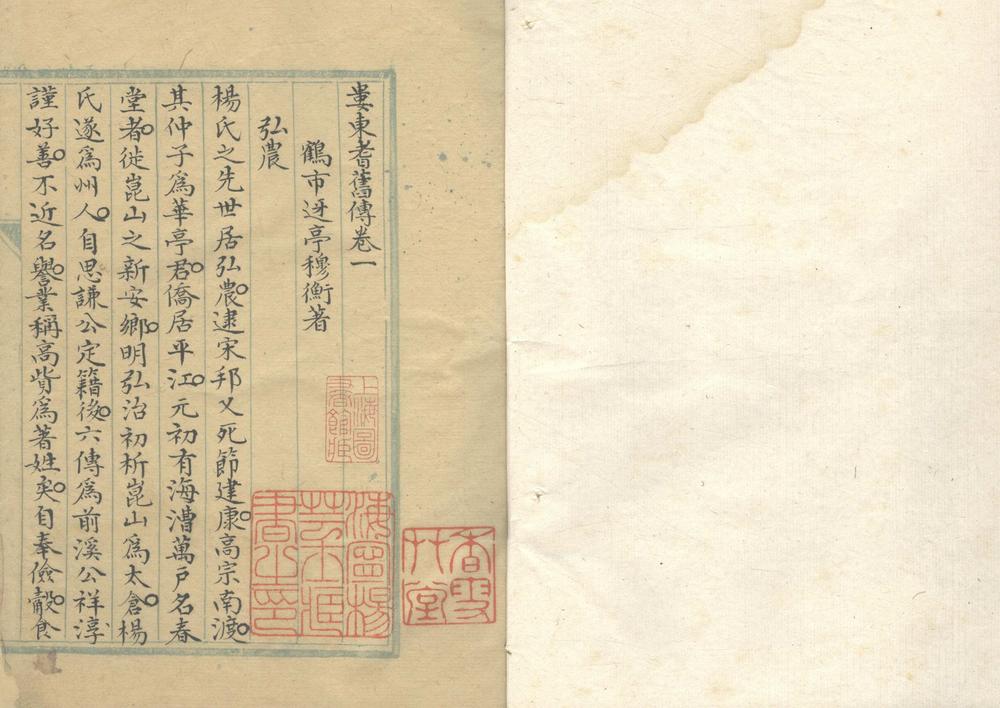 婁東耆舊傳卷一
鶴市迓亭穆衡著
弘農
楊氏之先世居弘農逮宋邦乂死節建康高宗南渡
其仲子爲華亭君僑居平江元初有海漕萬戶名春
堂者徙崑山之新安鄉明弘治初析崑山爲太倉楊
氏遂爲州人自思謙公定籍後六傳爲前溪公祥淳
謹好善不近名譽業稱高貲爲著姓矣自奉儉觳食
上海圖
書館藏
海寧楊
芸士藏
書之印
香雪
草堂